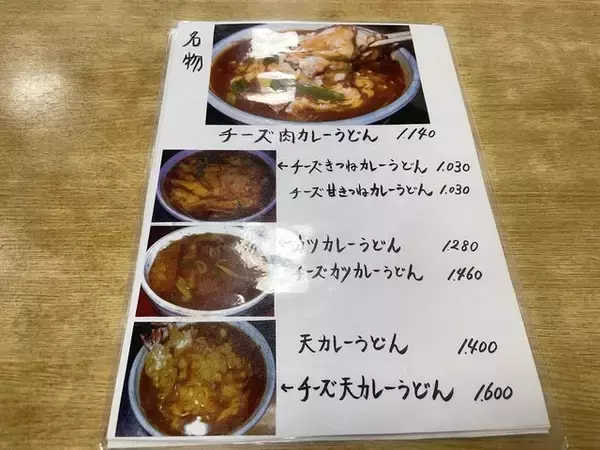 名物
チーズ肉カレーうどん 1.140
←チーズきつねカレーうどん 1.030
チーズ甘きつねカレーうどん 1.030
←カツカレーうどん 1280
チーズカツカレーうどん 1.460
天カレーうどん 1.400
←チーズ天カレーうどん 1.600